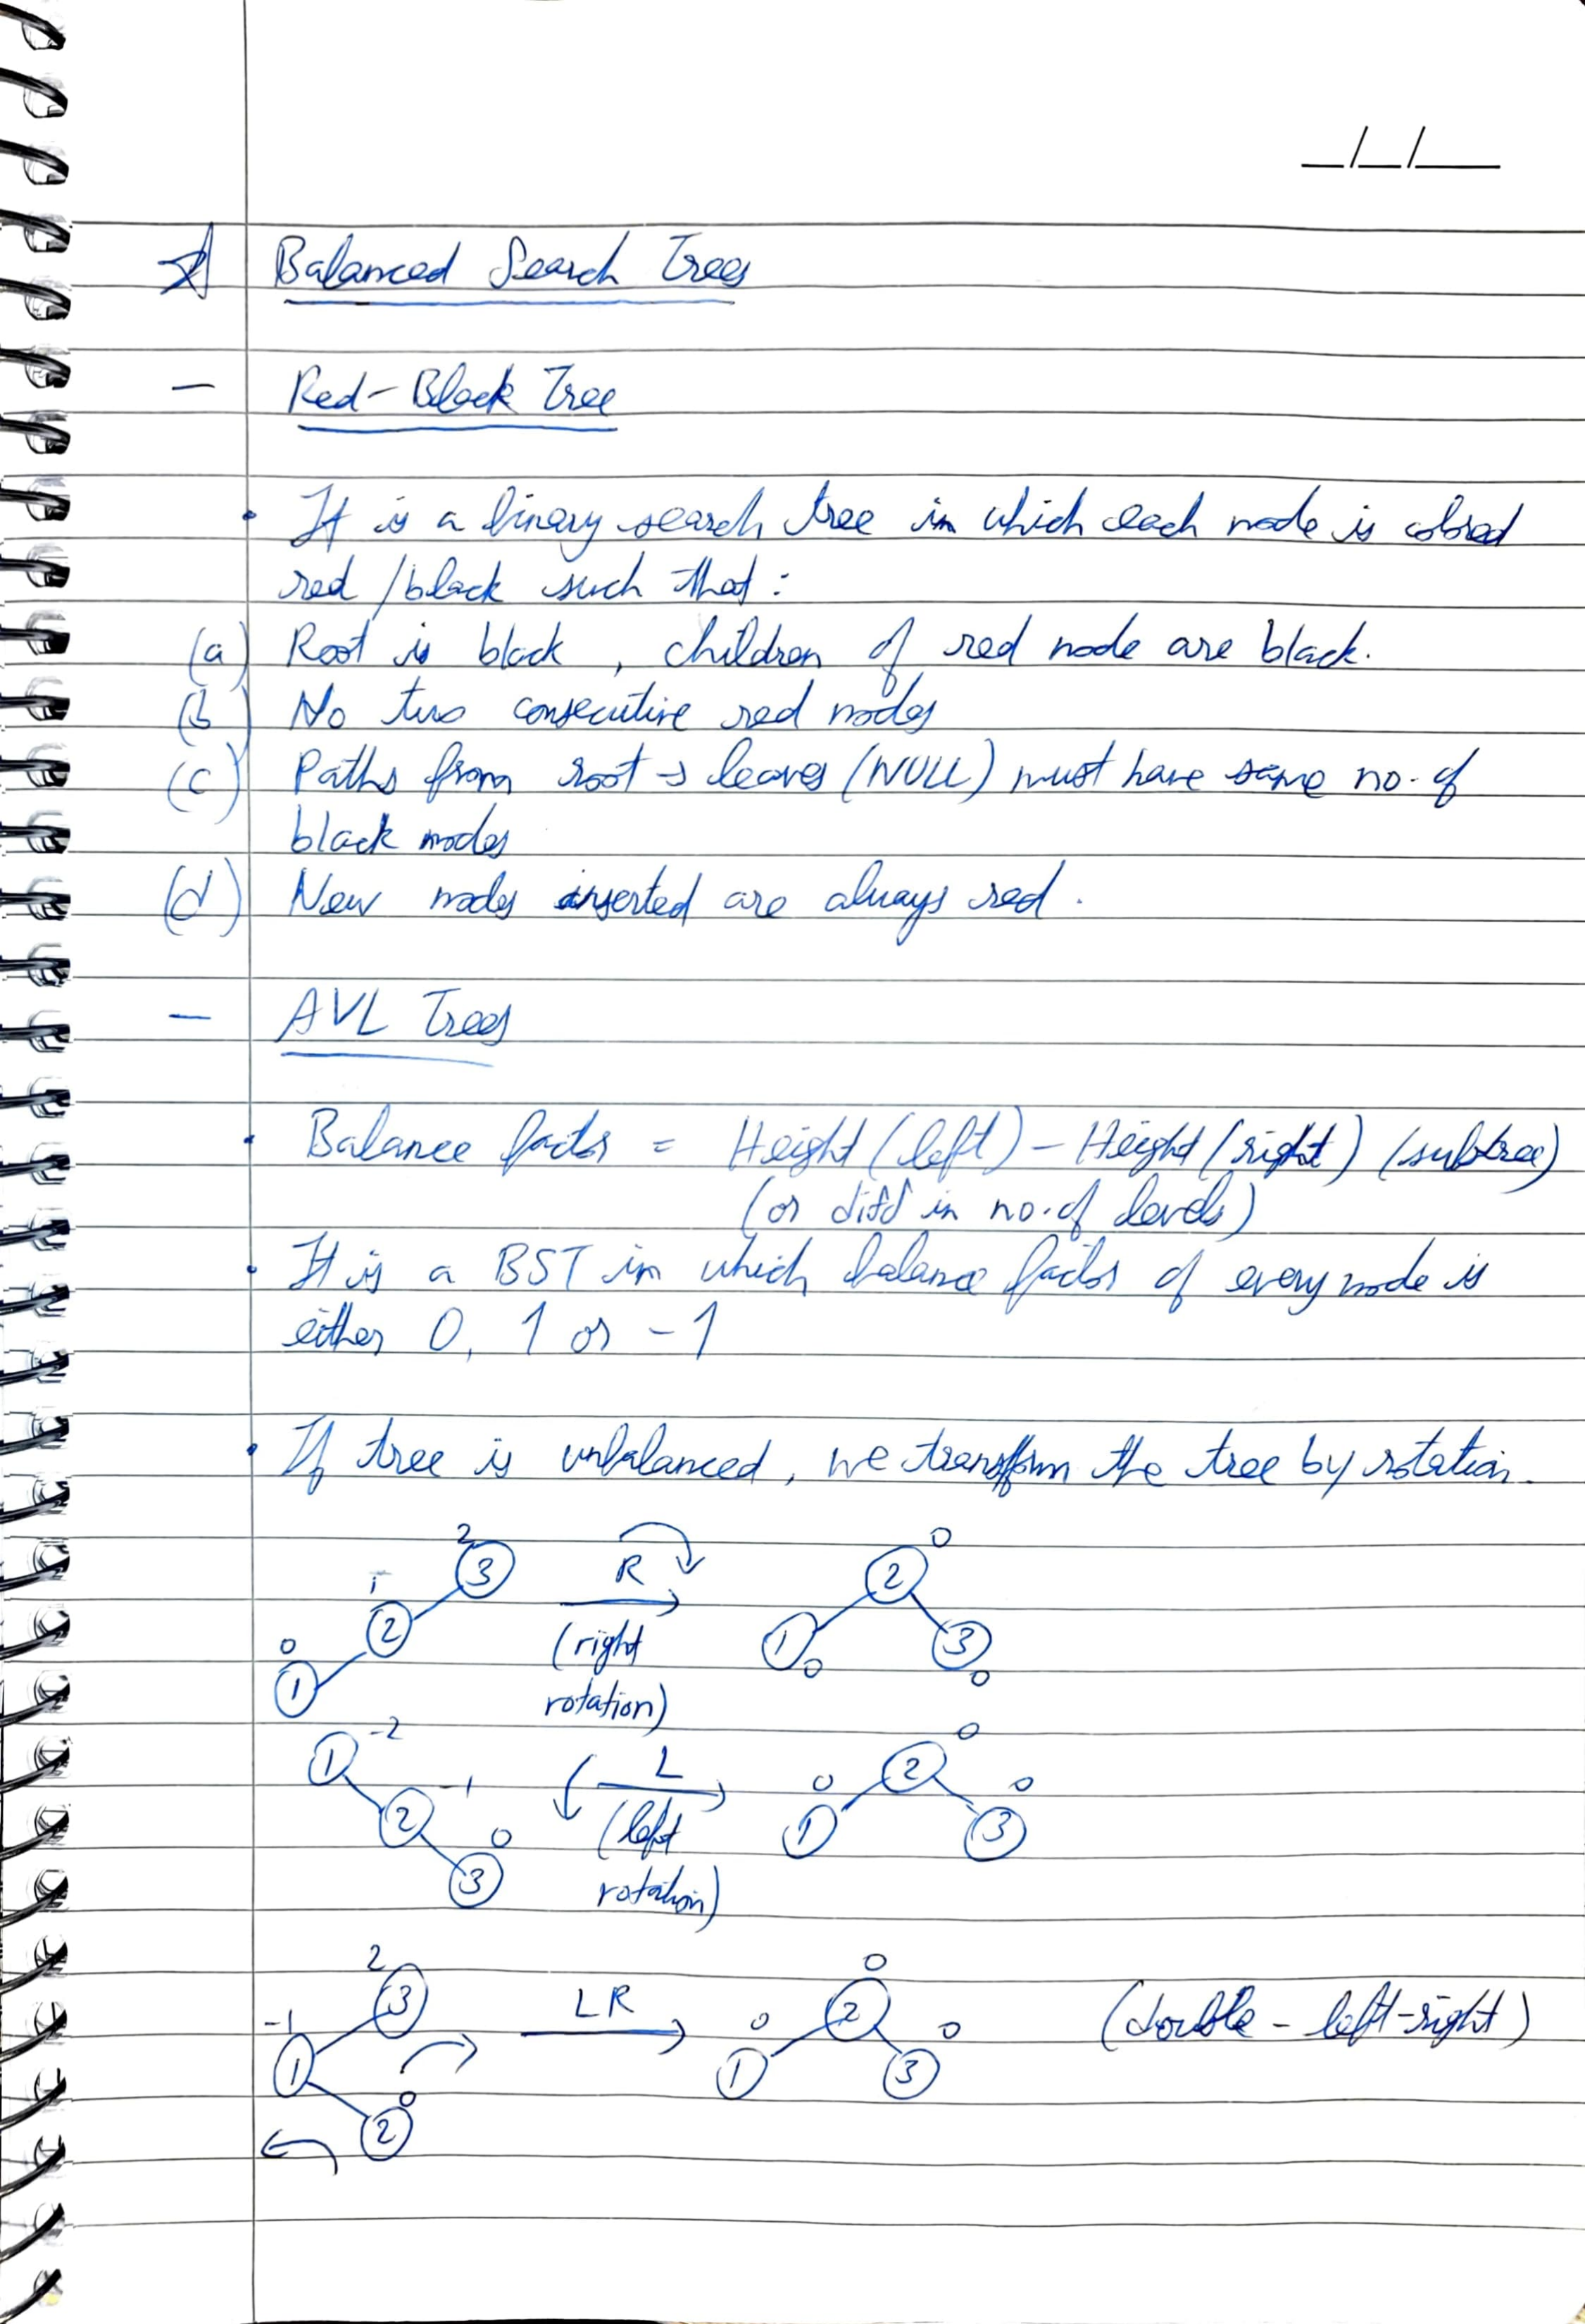 _/_/__
Balanced Search Trees
– Red-Black Tree
• It is a binary search tree in which each node is colored
red/black such that:
(a) Root is black, children of red node are black.
(b) No two consecutive red nodes
(c) Paths from root → leaves (NULL) must have same no. of
black nodes
(d) New nodes inserted are always red.
– AVL Trees
• Balance factor = Height (left) – Height (right) (subtree)
(or diff in no. of levels)
• It is a BST in which balance factor of every node is
either 0, 1 or -1
• If tree is unbalanced, we transform the tree by rotation.
2 3 R 2 0
1 2 (right 1 0 3 0
0 1 rotation)
1 -2 L 2 0
2 -1 (left 0 1 0 3
0 3 rotation)
2 3 LR 0 2 (double - left-right)
-1 1 0 1 0 3
0 2